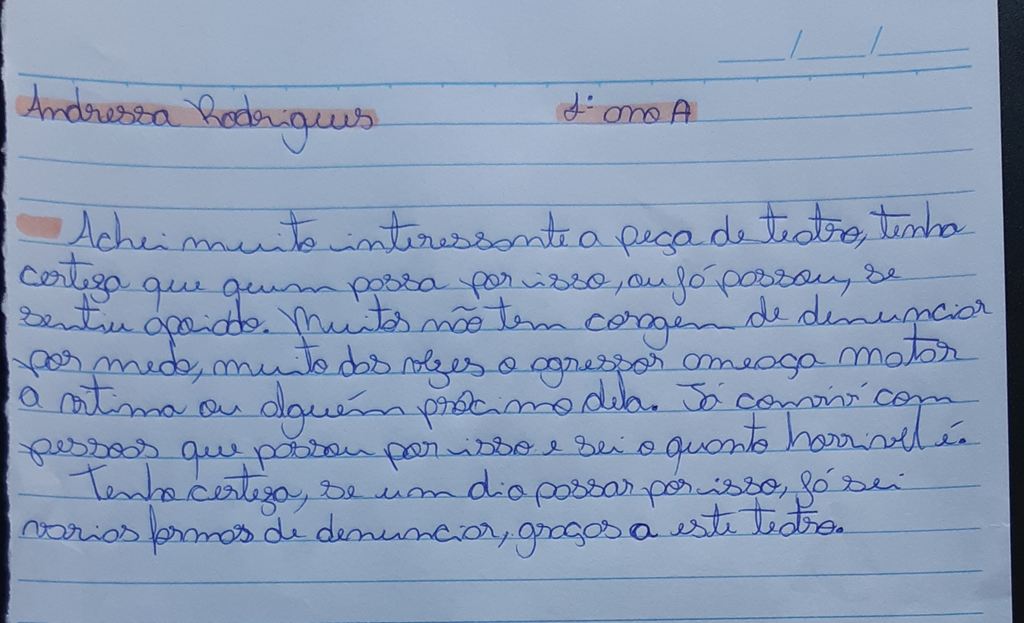 Andressa Rodrigues 1º ano A
Achei muito interessante a peça de teatro, tenho
certeza que quem passa por isso, ou já passou, se
sentiu apoiado. Muitos não tem coragem de denunciar
por medo, muito das vezes o agressor ameaça matar
a vitima ou alguém próximo dela. Já convivi com
pessoas que passou por isso e sei o quanto horrivell é.
Tenho certeza, se um dia passar por isso, já sei
varias formas de denunciar, graças a este teatro.